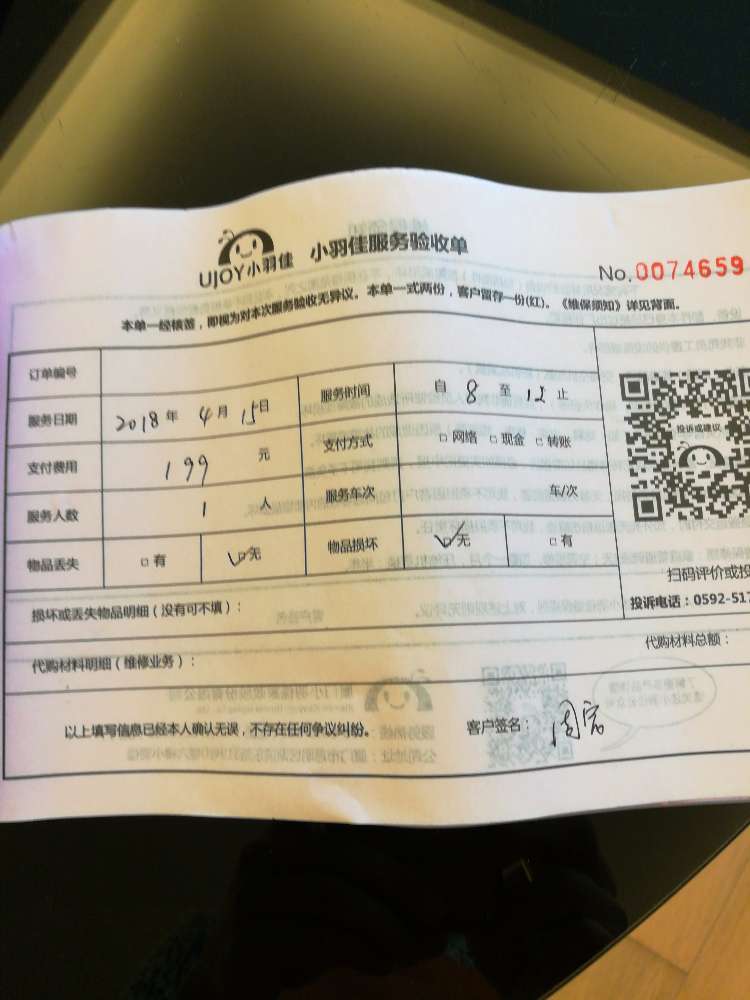 UJOY小羽佳 小羽佳服务验收单
No.0074659
本单一经核签，即视为对本次服务验收无异议。本单一式两份，客户留存一份(红)。《维保须知》详见背面。
订单编号
服务时间 自 8 至 12 止
服务日期 2018 年 4 月 15 日
支付方式 □网络 □现金 □转账
支付费用 199 元
服务车次 车/次
服务人数 1 人
物品丢失 □有 ☑无 物品损坏 ☑无 □有
投诉或建议
扫码评价或投
投诉电话：0592-517
损坏或丢失物品明细（没有可不填）：
代购材料总额：
代购材料明细（维修业务）：
以上填写信息已经本人确认无误，不存在任何争议纠纷。 客户签名：周宏